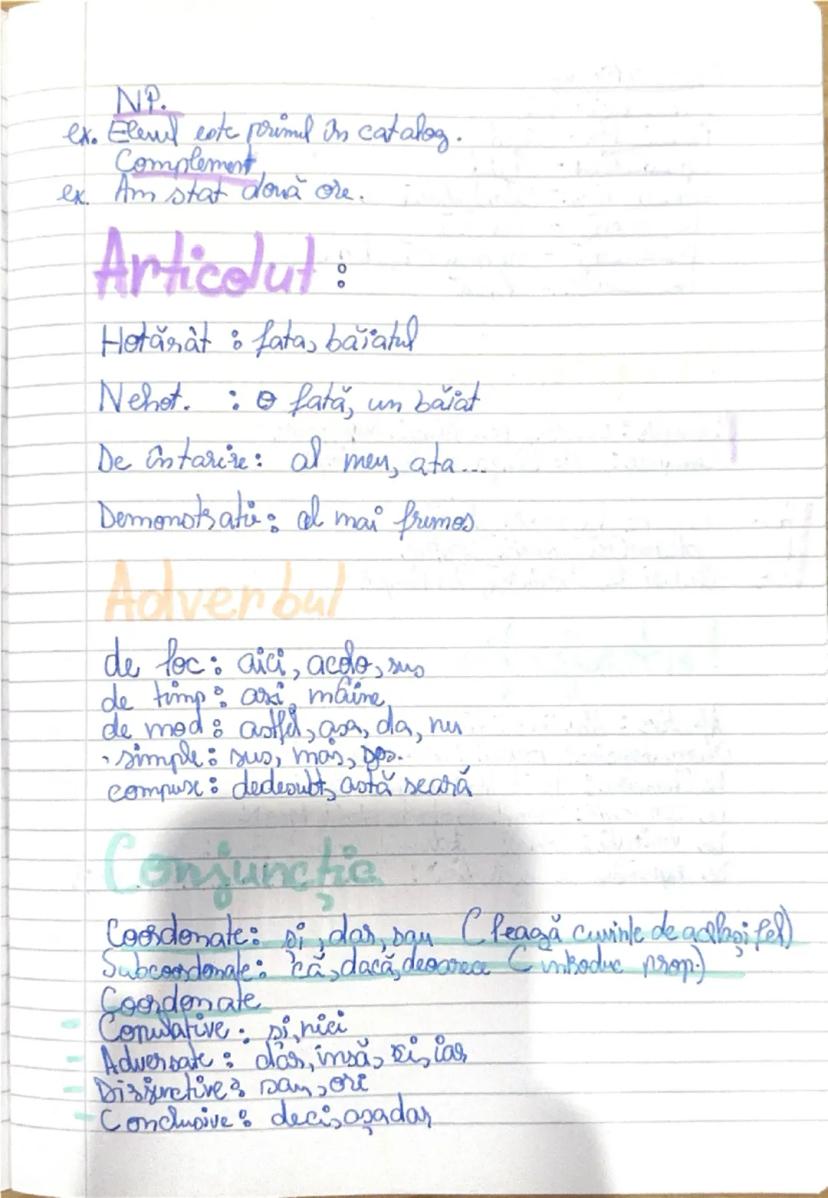 NP.
ex. Elevul este primul în catalog.
Complement
ex. Am stat două ore.
Articolul :
Hotărât : fata, băiatul
Nehot. : o fată, un băiat
De întarire: al meu, ata...
Demonstrativ: al mai frumos
Adverbul
de loc: aici, acolo, sus
de timp: azi, mâine,
de mod: astfel, așa, da, nu
· simple: sus, mâs,
compuse: dedesubt, astă seară
Conjuncția
Coordonate: și, dar, sau (leagă cuvinte de același fel)
Subcoordonate: că, dacă, deoarece (introduc prop.)
Coordonate
- Copulative: și, nici
- Adversate: dar, însă, ci, iar
- Disjunctive: sau, ori
- Conclusive: deci, așadar